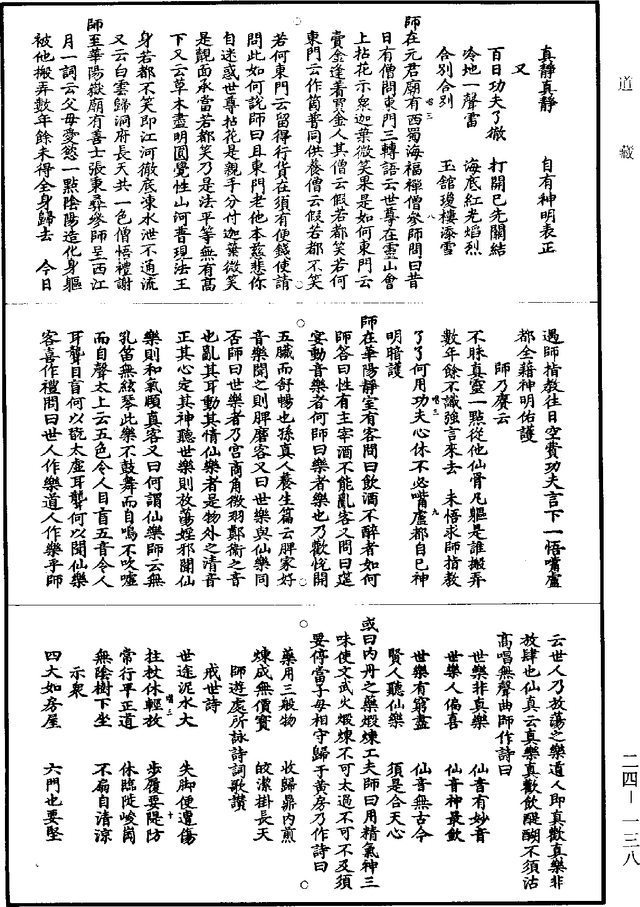 道藏
真靜真靜　自有神明表正
又
百日功夫了徹　打開巳先關結
冷地一聲雷　海底紅光焰烈
合別合別　玉館瓊樓滲雪
師在元君廟有西蜀海福禪僧參師問曰昔
日有僧問東門三轉語云世尊在靈山會
上拈花示衆迦葉微笑果是如何東門云
賣金逢着買金人其僧云假若都笑若何
東門云作箇普同供養僧云假若都不笑
若何東門云留得行貨在須有便錢使請
問此如何說師曰且東門老他本慈悲你
自迷惑世尊拈花是親手分付迦葉微笑
是覿面承當若都笑乃是法平等無有高
下又云草木盡明圓覺性山河普現法王
身若都不笑即江河徹底凍水泄不通流
又云白雲歸洞府長天共一色僧悟禮謝
師至華陽嶽廟有善士張秉彝參師至西江
月一詞云父母愛慾一點陰陽造化身軀
被他搬弄數年餘未得全身歸去　今日
遇師指教往日空費功夫言下一悟嘴盧
都全藉神明佑護
師乃賡云
不昧真靈一點從他仙骨凡軀是誰搬弄
數年餘不識強言來去　未悟求師指教
了了何用功夫心休不必嘴盧都自巳神
明暗護
師在華陽靜室有客問曰飲酒不醉者如何
師答曰性有主宰酒不能亂客又問曰筵
宴動音樂者何師曰樂者樂也乃歡悅開
五臟而舒暢也孫真人養生篇云脾家好
音樂聞之則脾磨客又曰世樂與仙樂同
否師曰世樂者乃宮商角徵羽鄭衛之音
也亂其耳動其情仙樂者是物外之清音
正其心定其神聽世樂則放蕩婬邪聞仙
樂則和氣頤真客又曰何謂仙樂師云無
孔笛無絃琴此樂不鼓舞而自鳴不吹噓
而自聲太上云五色令人目盲五音令人
耳聾目盲何以瞉太虛耳聾何以聞仙樂
客喜作禮問曰世人作樂道人作樂乎師
云世人乃放蕩之樂道人即真歡真樂非
放肆也仙真云真樂真歡飲醍醐不須沽
高唱無聲曲師作詩曰
世樂非真樂　仙音有妙音
世樂人偏喜　仙音神最歆
世樂有窮盡　仙音無古今
賢人聽仙樂　須是合天心
或曰內丹之藥煅煉工夫師曰用精氣神三
味使文武火煅煉不可太過不可不及須
要停當子母相守歸于黃房乃作詩曰
藥用三般物　收歸鼎內煎
煉成無價寶　皎潔掛長天
師遊處所詠詩詞歌讚
戒世詩
世途泥水大　失脚便遭傷
拄杖休輕放　步履要隄防
常行平正道　休臨陡峻崗
無陰樹下坐　不扇自清涼
示衆
四大如房屋　六門也要堅
二四－一三八